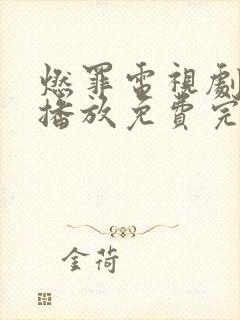 燃罪電視劇
播放免費完
金荷